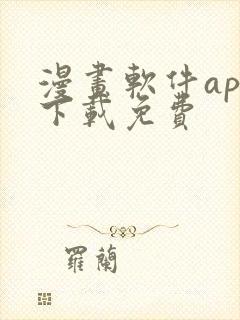 漫畫軟件ap
下載免費
羅蘭